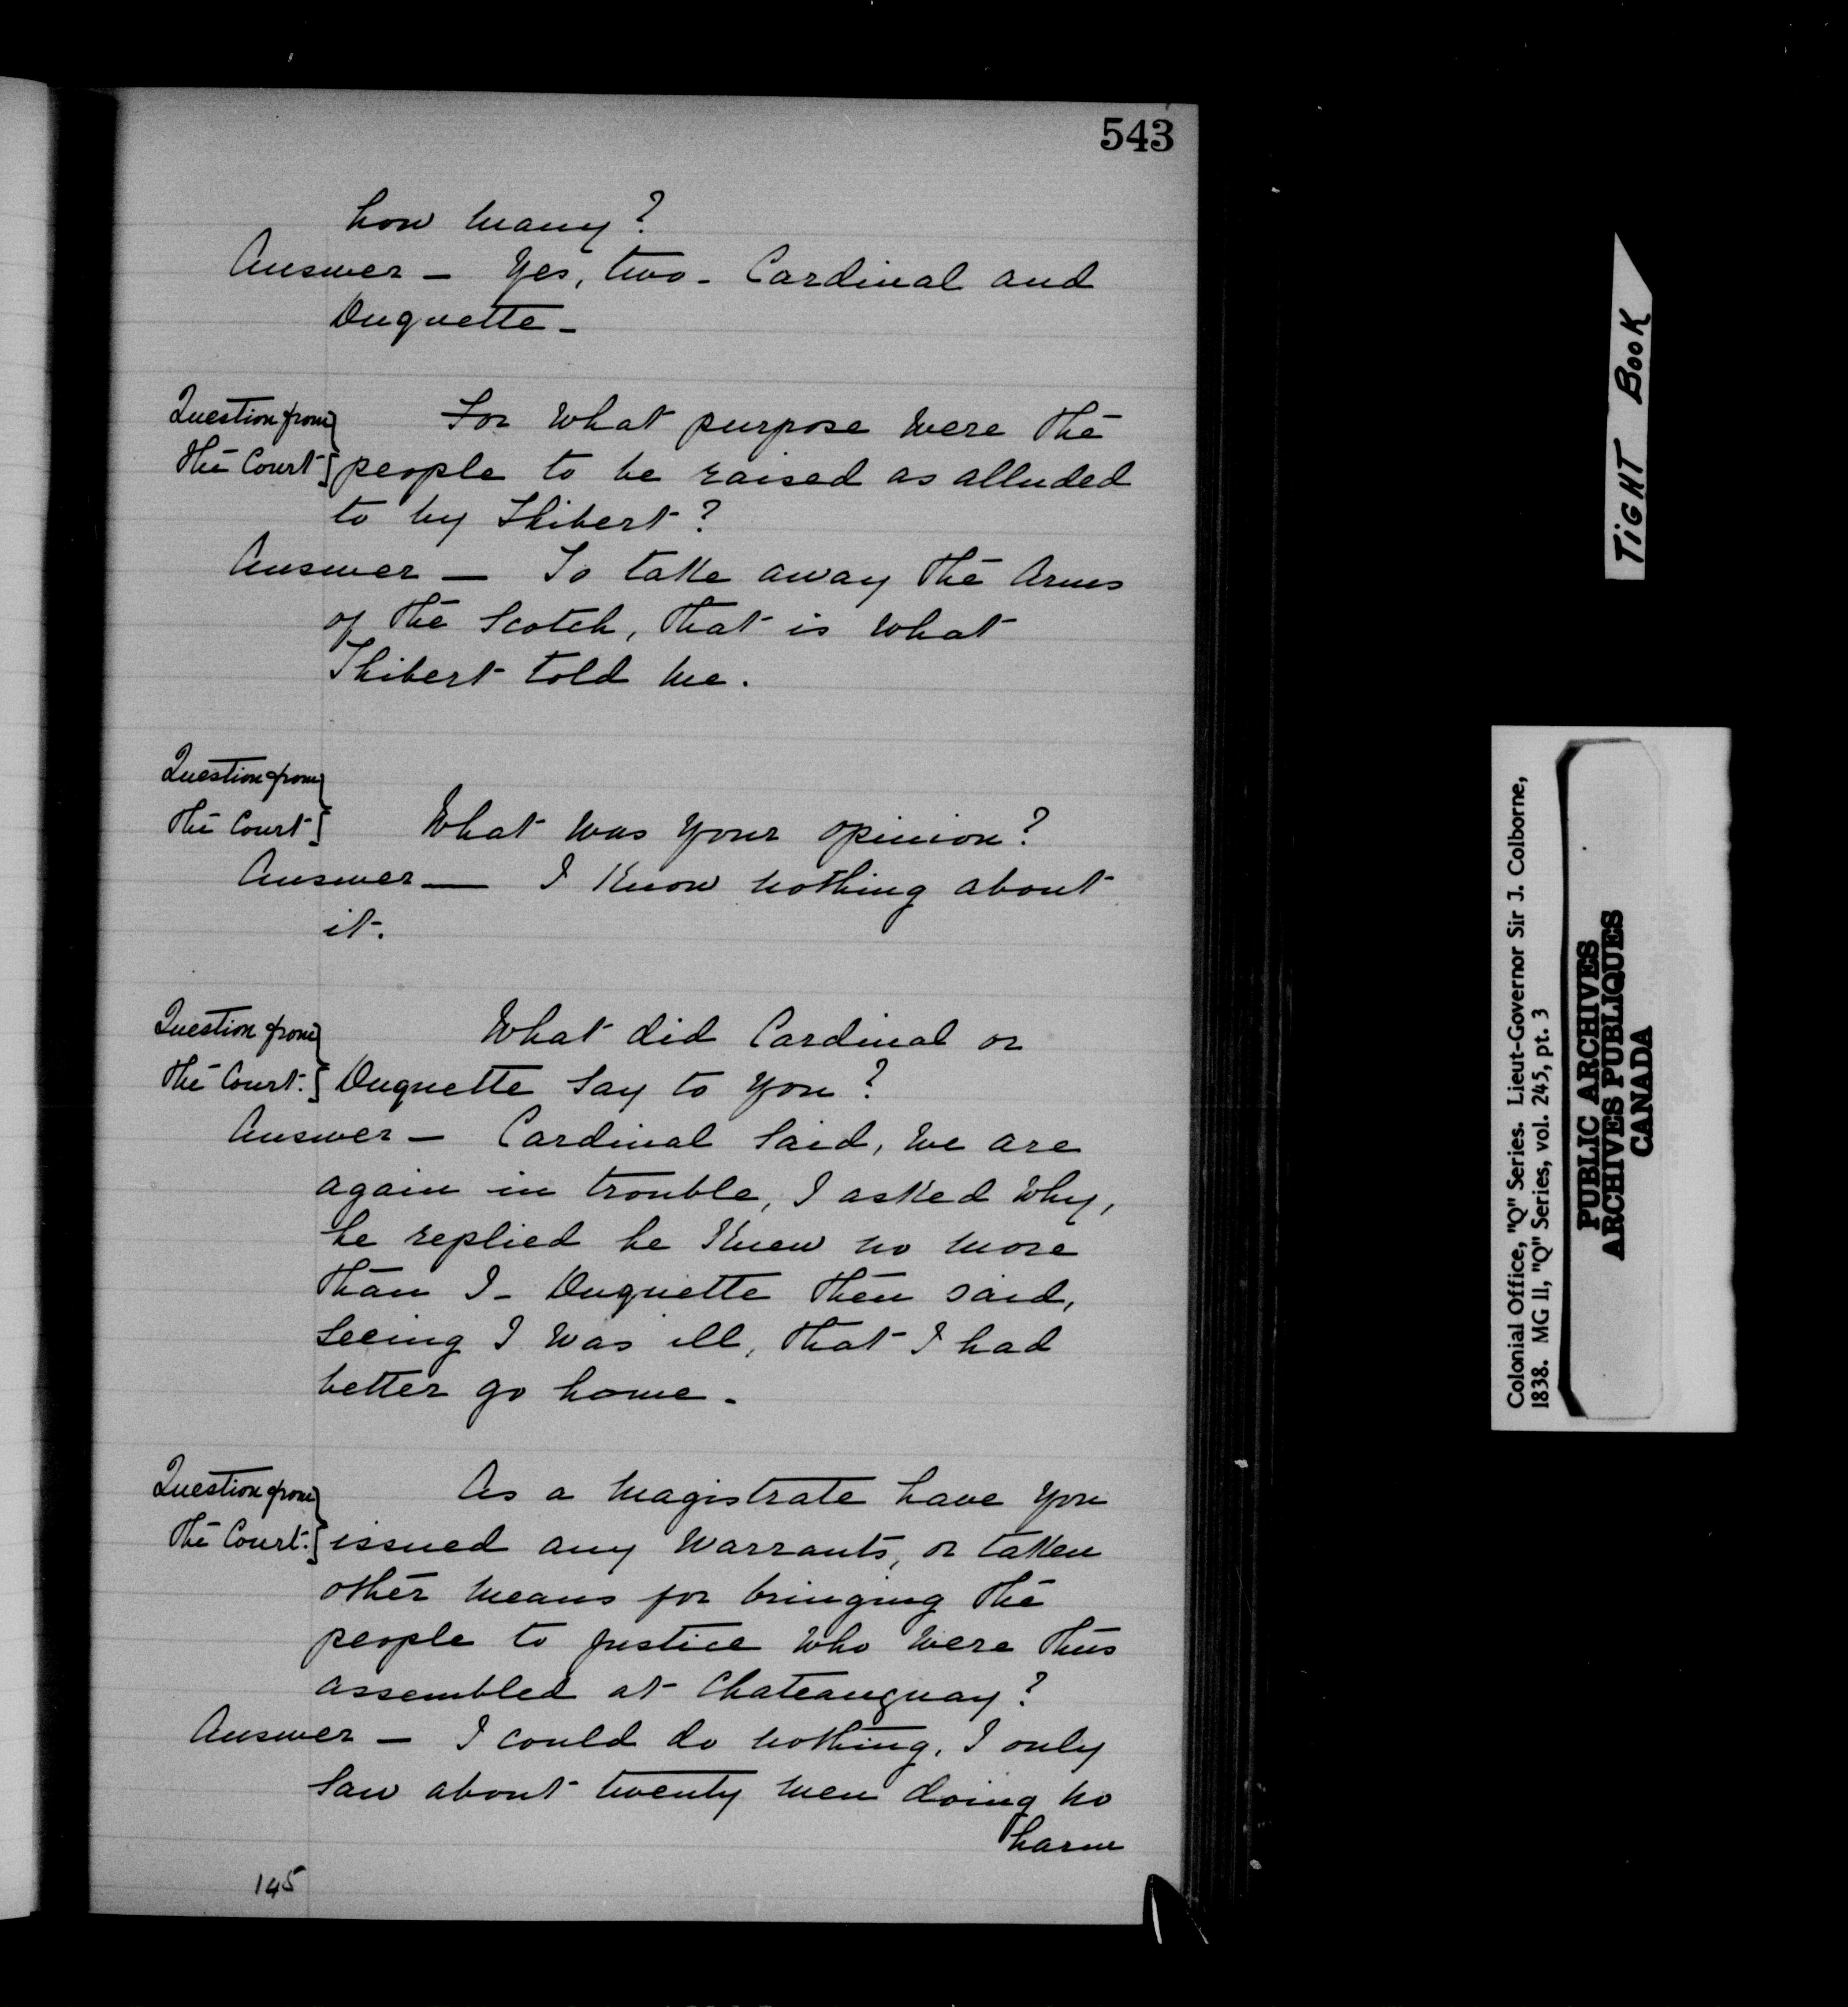 543
how many?
Answer — Yes, two — Cardinal and
Duquette —
Question from
the Court
For what purpose were the
people to be raised as alluded
to by Thibert?
Answer — To take away the Arms
of the Scotch, that is what
Thibert told me.
Question from
the Court
What was your opinion?
Answer — I know nothing about
it.
Question from
the Court.
What did Cardinal or
Duquette say to you?
Answer — Cardinal said, we are
again in trouble, I asked why,
he replied he knew no more
than I — Duquette then said,
seeing I was ill, that I had
better go home.
Question from
the Court.
As a Magistrate have you
issued any warrants, or taken
other means for bringing the
people to justice who were thus
assembled at Chateauguay?
Answer — I could do nothing, I only
saw about twenty men doing no
harm
145
TIGHT BOOK
Colonial Office, "Q" Series. Lieut-Governor Sir J. Colborne,
1838. MG 11, "Q" Series, vol. 245, pt. 3
PUBLIC ARCHIVES
ARCHIVES PUBLIQUES
CANADA